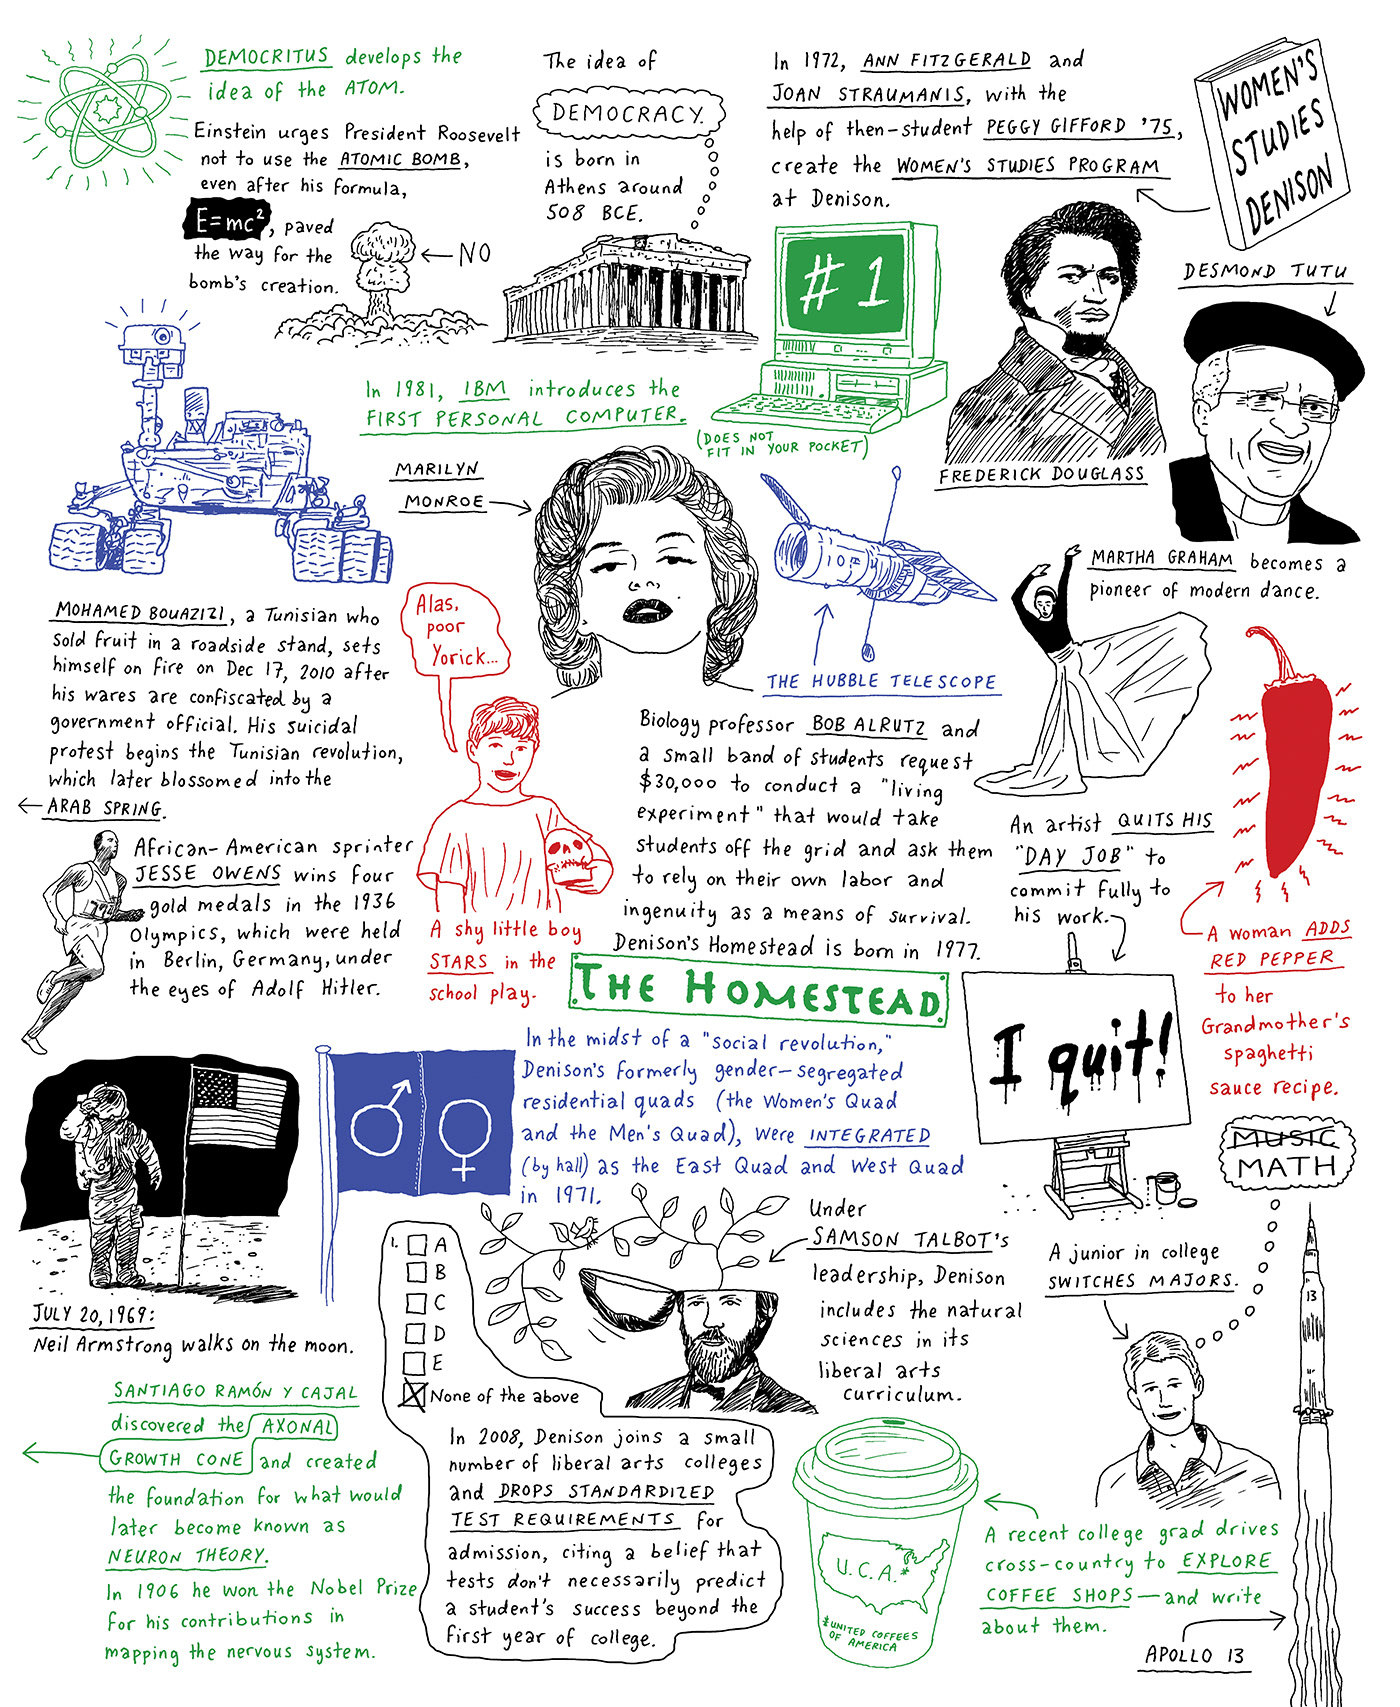 DEMOCRITUS develops the
idea of the ATOM.
Einstein urges President Roosevelt
not to use the ATOMIC BOMB,
even after his formula,
E=mc², paved
the way for the
bomb's creation.
NO
The idea of
DEMOCRACY.
is born in
Athens around
508 BCE.
In 1972, ANN FITZGERALD and
JOAN STRAUMANIS, with the
help of then-student PEGGY GIFFORD '75,
create the WOMEN'S STUDIES PROGRAM
at Denison.
WOMEN'S
STUDIES
DENISON
DESMOND TUTU
#1
In 1981, IBM introduces the
FIRST PERSONAL COMPUTER.
(DOES NOT
FIT IN YOUR POCKET)
FREDERICK DOUGLASS
MARILYN
MONROE
THE HUBBLE TELESCOPE
MARTHA GRAHAM becomes a
pioneer of modern dance.
MOHAMED BOUAZIZI, a Tunisian who
sold fruit in a roadside stand, sets
himself on fire on Dec 17, 2010 after
his wares are confiscated by a
government official. His suicidal
protest begins the Tunisian revolution,
which later blossomed into the
ARAB SPRING.
Alas,
poor
Yorick...
A shy little boy
STARS in the
school play.
Biology professor BOB ALRUTZ and
a small band of students request
$30,000 to conduct a "living
experiment" that would take
students off the grid and ask them
to rely on their own labor and
ingenuity as a means of survival.
Denison's Homestead is born in 1977.
THE HOMESTEAD.
An artist QUITS HIS
"DAY JOB" to
commit fully to
his work.
I quit!
A woman ADDS
RED PEPPER
to her
Grandmother's
spaghetti
sauce recipe.
African-American sprinter
JESSE OWENS wins four
gold medals in the 1936
Olympics, which were held
in Berlin, Germany, under
the eyes of Adolf Hitler.
In the midst of a "social revolution,"
Denison's formerly gender-segregated
residential quads (the Women's Quad
and the Men's Quad), were INTEGRATED
(by hall) as the East Quad and West Quad
in 1971.
JULY 20, 1969:
Neil Armstrong walks on the moon.
1. A
B
C
D
E
None of the above
In 2008, Denison joins a small
number of liberal arts colleges
and DROPS STANDARDIZED
TEST REQUIREMENTS for
admission, citing a belief that
tests don't necessarily predict
a student's success beyond the
first year of college.
Under
SAMSON TALBOT's
leadership, Denison
includes the natural
sciences in its
liberal arts
curriculum.
MUSIC
MATH
A junior in college
SWITCHES MAJORS.
13
SANTIAGO RAMÓN Y CAJAL
discovered the AXONAL
GROWTH CONE and created
the foundation for what would
later become known as
NEURON THEORY.
In 1906 he won the Nobel Prize
for his contributions in
mapping the nervous system.
U.C.A.*
*UNITED COFFEES
OF AMERICA
A recent college grad drives
cross-country to EXPLORE
COFFEE SHOPS—and write
about them.
APOLLO 13